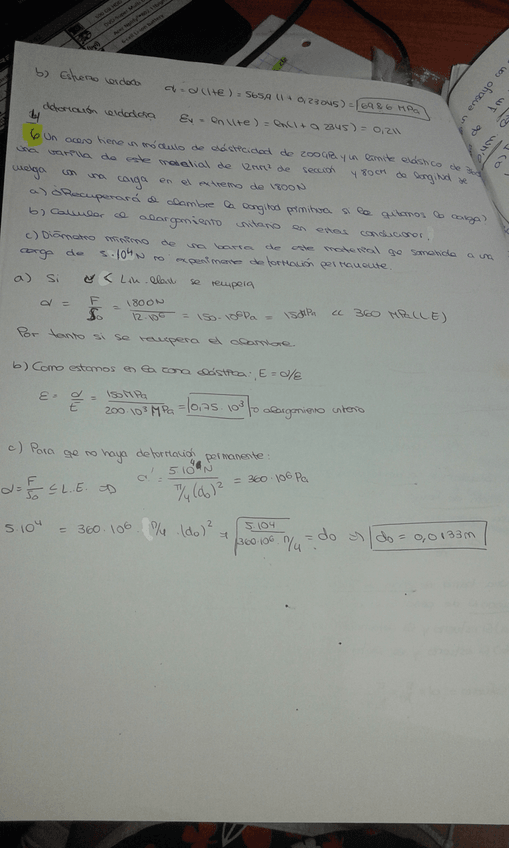 b) Esfuerzo verdadero σ = σ(1+ε) = 565,9 (1 + 0,23045) = 698.6 MPa
deformación verdadera εv = ln(1+ε) = ln(1 + 0,2345) = 0,211
6 Un acero tiene un módulo de elasticidad de 200GPa y un límite elástico de 360
una varilla de este material de 12mm² de sección y 80cm de longitud se
cuelga con una carga en el extremo de 1800N
a) ¿Recuperará el alambre la longitud primitiva si le quitamos la carga?
b) Calcular el alargamiento unitario en estas condiciones.
c) Diámetro mínimo de una barra de este material qe sometida a una
carga de 5·10⁴N no experimente deformación permanente.
a) Si σ < Lim. elast. se recupera
σ = F/S₀ = 1800N/12·10⁶ = 150·10⁶Pa = 150MPa << 360 MPa (L.E)
Por tanto si se recupera el alambre.
b) Como estamos en la zona elástica: E = σ/ε
ε = σ/E = 150MPa/200·10³MPa = 0,75·10³ → alargamiento unitario
c) Para qe no haya deformación permanente:
σ = F/S₀ ≤ L.E. ⇒ σ = 5·10⁴N/π/4 (d₀)² = 360·10⁶Pa
5·10⁴ = 360·10⁶ · π/4 · (d₀)² ⇒ √5·10⁴/360·10⁶·π/4 = d₀ ⇒ d₀ = 0,0133m